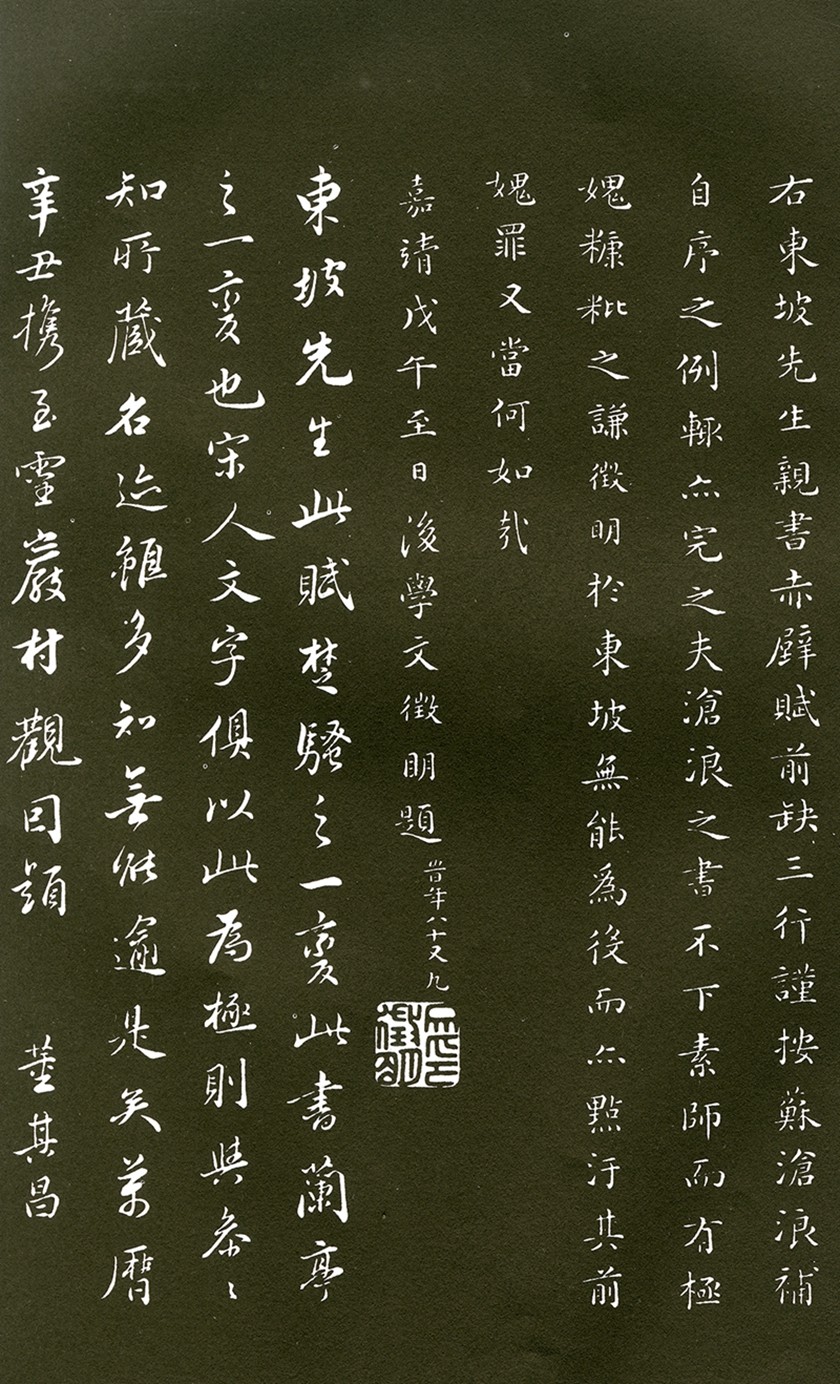 右東坡先生親書赤壁賦前缺三行謹按蘇滄浪補
自序之例輒亦完之夫滄浪之書不下素師而有極
媿糠粃之謙徵明於東坡無能為後而亦點汙其前
媿罪又當何如哉
嘉靖戊午至日後學文徵明題 旹年八十又九
東坡先生此賦楚騷之一變此書蘭亭
之一變也宋人文字俱以此為極則與叅〻
知所藏名迹雖多知無能逾是矣萬曆
辛丑攜至靈巖村觀因題 董其昌